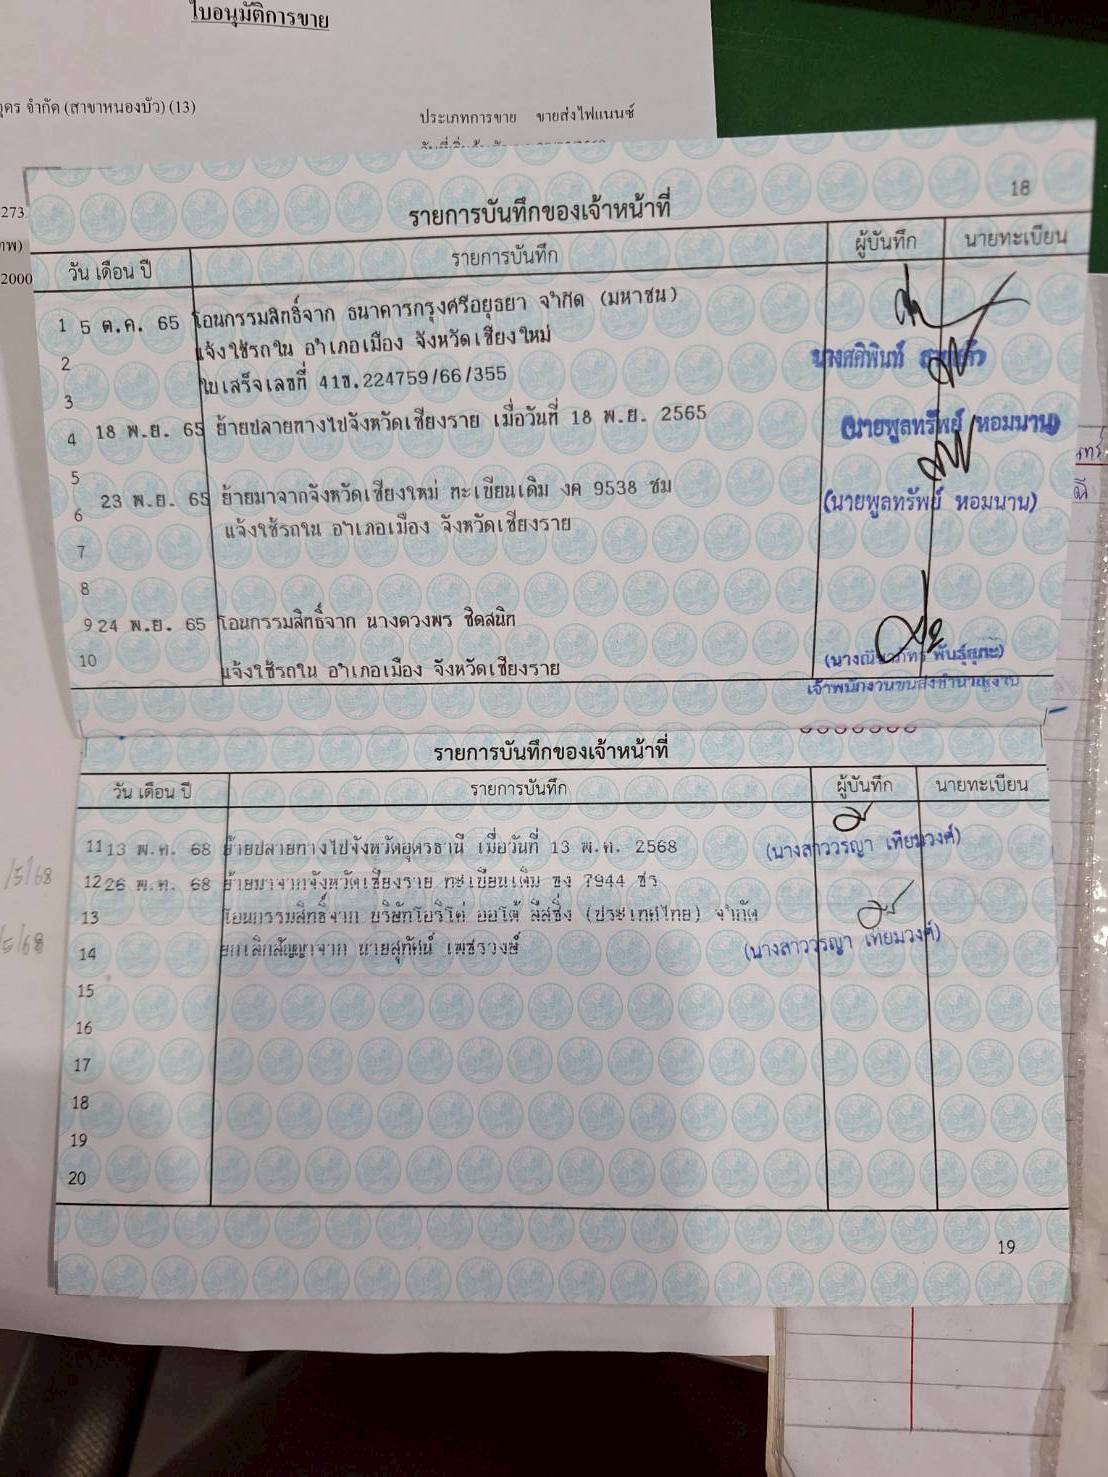 ใบอนุมัติการขาย
จำกัด (สาขาหนองบัว) (13)
ประเภทการขาย ขายส่งไฟแนนซ์
273
2000
18
รายการบันทึกของเจ้าหน้าที่
วัน เดือน ปี รายการบันทึก ผู้บันทึก นายทะเบียน
1 5 ต.ค. 65 โอนกรรมสิทธิ์จาก ธนาคารกรุงศรีอยุธยา จำกัด (มหาชน)
2 แจ้งใช้รถใน อำเภอเมือง จังหวัดเชียงใหม่
นางศศิพินท์
3 ใบเสร็จเลขที่ 41ข.224759/66/355
4 18 พ.ย. 65 ย้ายปลายทางไปจังหวัดเชียงราย เมื่อวันที่ 18 พ.ย. 2565
(นายพูลทรัพย์ หอมนาน)
5
6 23 พ.ย. 65 ย้ายมาจากจังหวัดเชียงใหม่ ทะเบียนเดิม งค 9538 ชม
(นายพูลทรัพย์ หอมนาน)
7 แจ้งใช้รถใน อำเภอเมือง จังหวัดเชียงราย
8
9 24 พ.ย. 65 โอนกรรมสิทธิ์จาก นางดวงพร ชิดสนิท
10 แจ้งใช้รถใน อำเภอเมือง จังหวัดเชียงราย
เจ้าพนักงานขนส่งชำนาญงาน
รายการบันทึกของเจ้าหน้าที่
วัน เดือน ปี รายการบันทึก ผู้บันทึก นายทะเบียน
11 13 พ.ค. 68 ย้ายปลายทางไปจังหวัดอุดรธานี เมื่อวันที่ 13 พ.ค. 2568
(นางสาววรญา เทียมวงศ์)
12 26 พ.ค. 68 ย้ายมาจากจังหวัดเชียงราย ทะเบียนเดิม ขง 7944 ชร
13 โอนกรรมสิทธิ์จาก บริษัทโอริโค่ ออโต้ ลีสซิ่ง (ประเทศไทย) จำกัด
14 ยกเลิกสัญญาจาก นายสุทัศน์ เพชรวงษ์
(นางสาววรญา เทียมวงศ์)
15
16
17
18
19
20
19
/5/68
/5/68